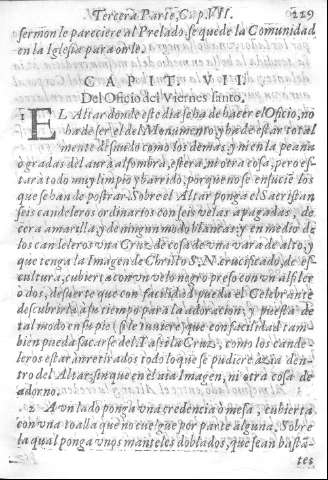 Tercera Parte, Cap. VII. 229
sermon le pareciere al Prelado se quede la Comunidad
en la Iglesia para oirle.
CAPIT. VII.
Del Oficio del Viernes santo.
1 EL Altar donde este dia se ha de hacer el Oficio, no
ha de ser el del Monumento, y ha de estar total
mente desnudo como los demas, y ni en la peana
ò gradas del aurà alfombra, estera, ni otra cosa, pero es-
tarà todo muy limpio y barrido, porque no se ensucie los
que se han de postrar. Sobre el Altar ponga el Sacristan
seis candeleros ordinarios con seis velas apagadas, de
cera amarilla, y de ningun modo blancas, y en medio de
los candeleros vna Cruz de cosa de vna vara de alto, y
que tenga la Imagen de Christo S. N. crucificado, de es-
cultura, cubierta con vn velo negro preso con vn alfiler
o dos, de suerte que con facilidad pueda el Celebrante
descubrirla à su tiempo para la adoracion; y puesta de
tal modo en su pie (si le tuviere) que con facilidad tam-
bien pueda sacarse del. Tassi la Cruz, como los cande-
leros estàn retirados todo lo que se pudiere àzia den-
tro del Altar, sin que en èl aia Imagen, ni otra cosa de
adorno.
2 A vn lado ponga vna credencia ò mesa, cubierta
con vna toalla que no cuelgue por parte alguna. Sobre
la qual ponga vnos manteles doblados, que sean bastā-
tes